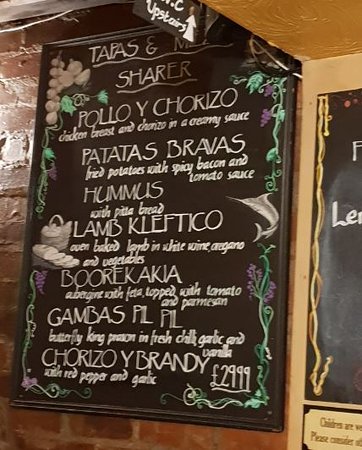 W.C
Upstairs
TAPAS &
SHARER
POLLO Y CHORIZO
chicken breast and chorizo in a creamy sauce
PATATAS BRAVAS
fried potatoes with spicy bacon and
tomato sauce
HUMMUS
with pitta bread
LAMB KLEFTICO
oven baked lamb in white wine, oregano
and vegetables
BOOREKAKIA
aubergine with feta, topped with tomato
and parmesan
GAMBAS PIL PIL
butterfly king prawn in fresh chilli, garlic and
vanilla
CHORIZO Y BRANDY
with red pepper and garlic
£29.99
Children are we
Please consider ot